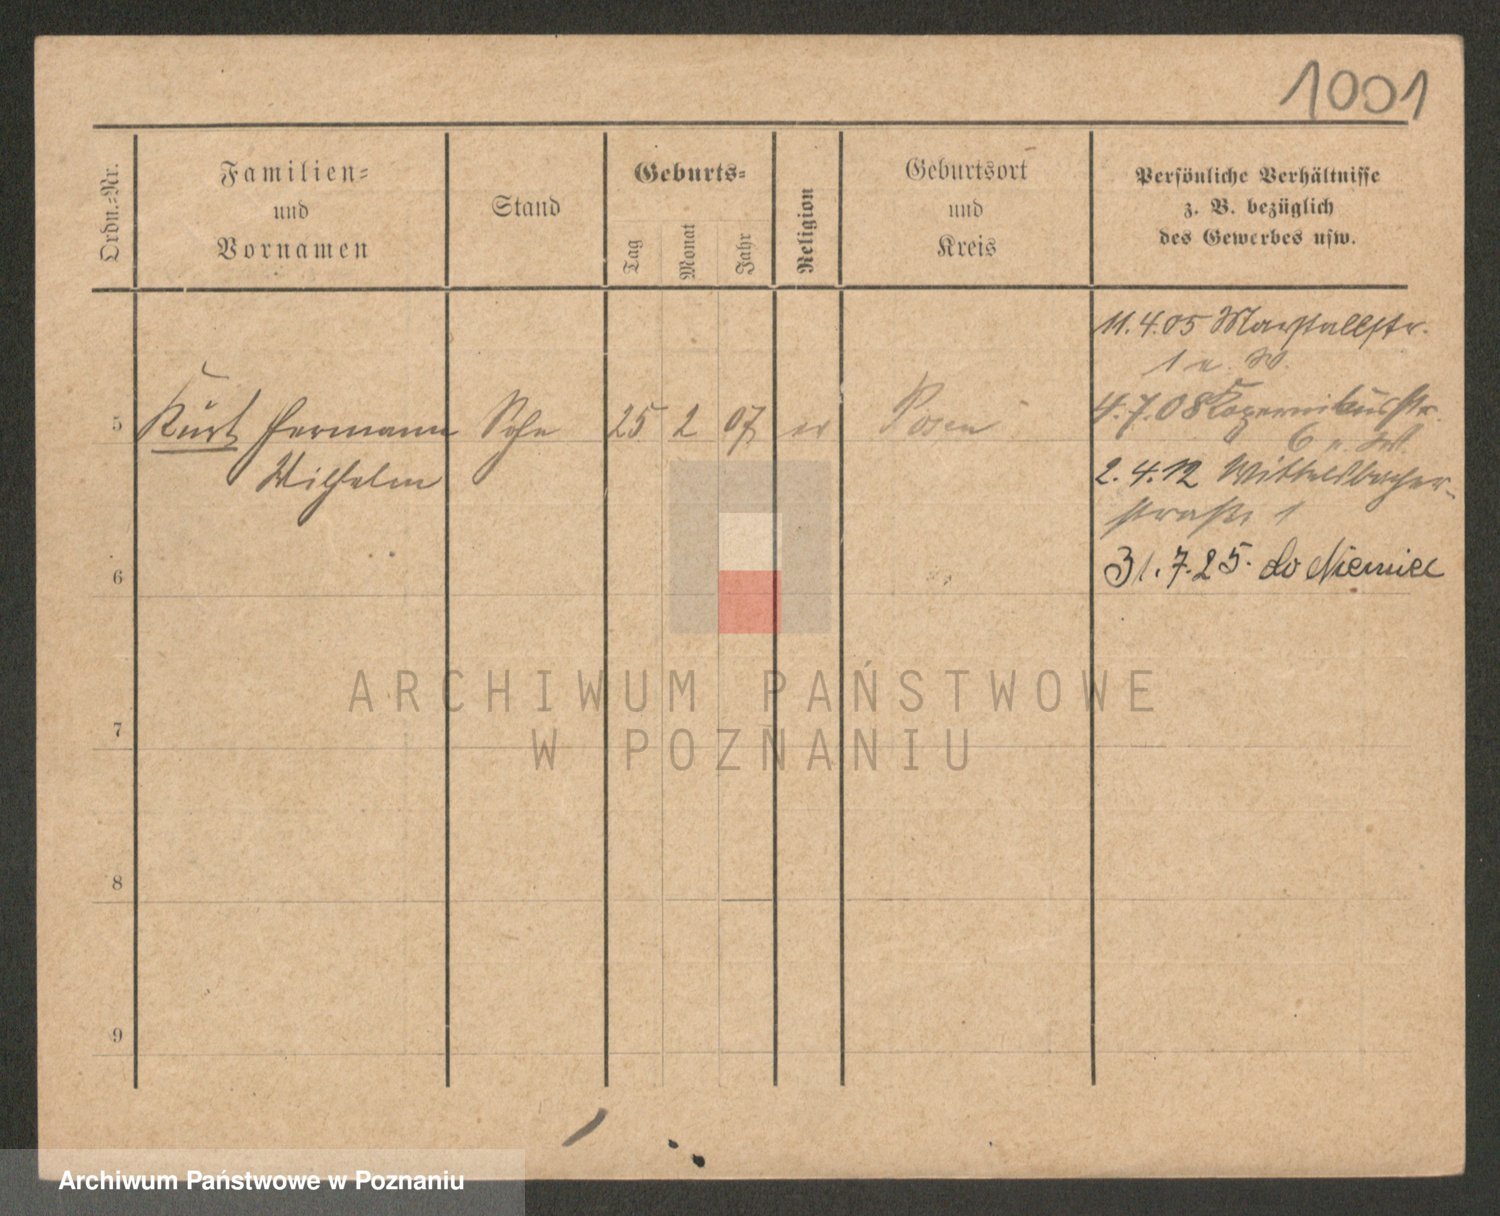 1001
Ordn.-Nr.
Familien-
und
Vornamen
Stand
Geburts-
Tag
Monat
Jahr
Religion
Geburtsort
und
Kreis
Persönliche Verhältnisse
z. B. bezüglich
des Gewerbes usw.
11.4.05 Marstallstr.
1
5 Kurt Hermann Sohn 25 2 07 ev Posen 4.7.08 Kopernikusstr.
6
Wilhelm 2.4.12 Wittelsbacher-
straße 1
6 31.7.25. do Niemiec
7
8
9
ARCHIWUM PAŃSTWOWE
W POZNANIU
Archiwum Państwowe w Poznaniu